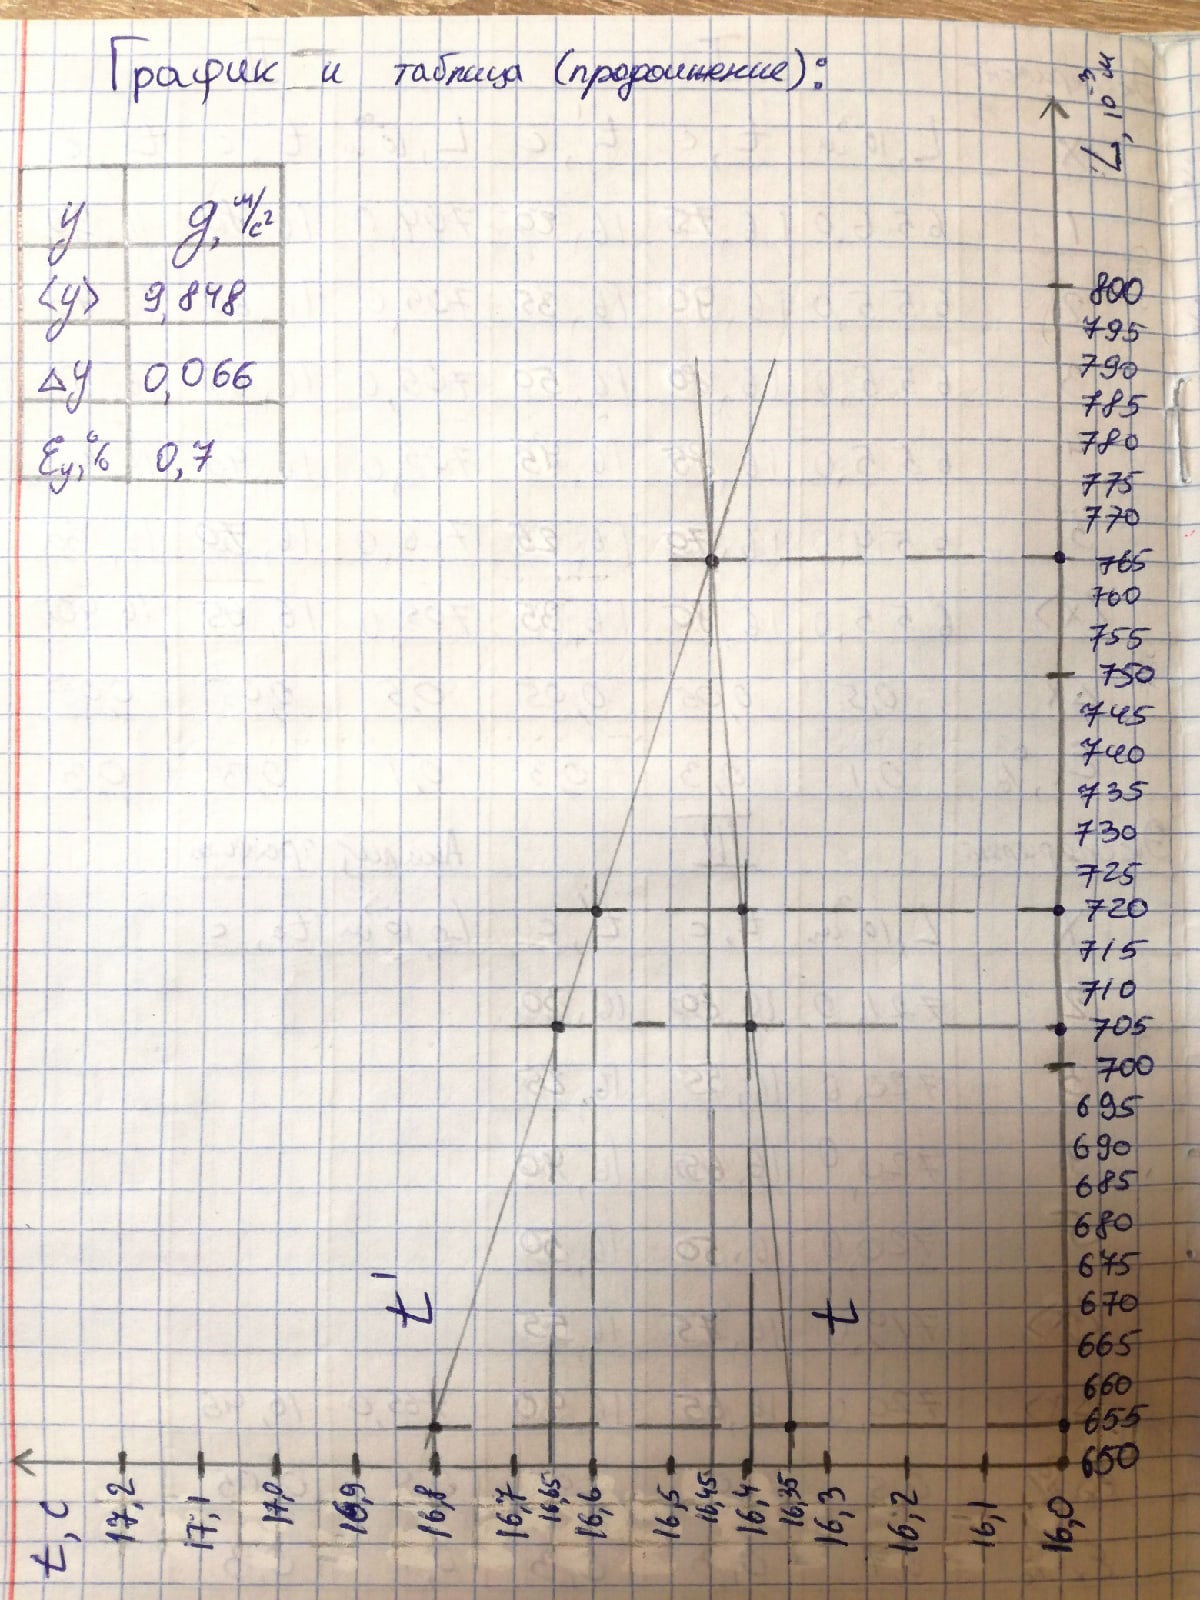 График и таблица (продолжение):
y g, м/с²
<y> 9,848
Δy 0,066
εy, % 0,7
L, 10⁻³ м
800
795
790
785
780
775
770
765
760
755
750
745
740
735
730
725
720
715
710
705
700
695
690
685
680
675
670
665
660
655
650
t'
t
t, с 17,2 17,1 17,0 16,9 16,8 16,7 16,65 16,6 16,5 16,45 16,4 16,35 16,3 16,2 16,1 16,0